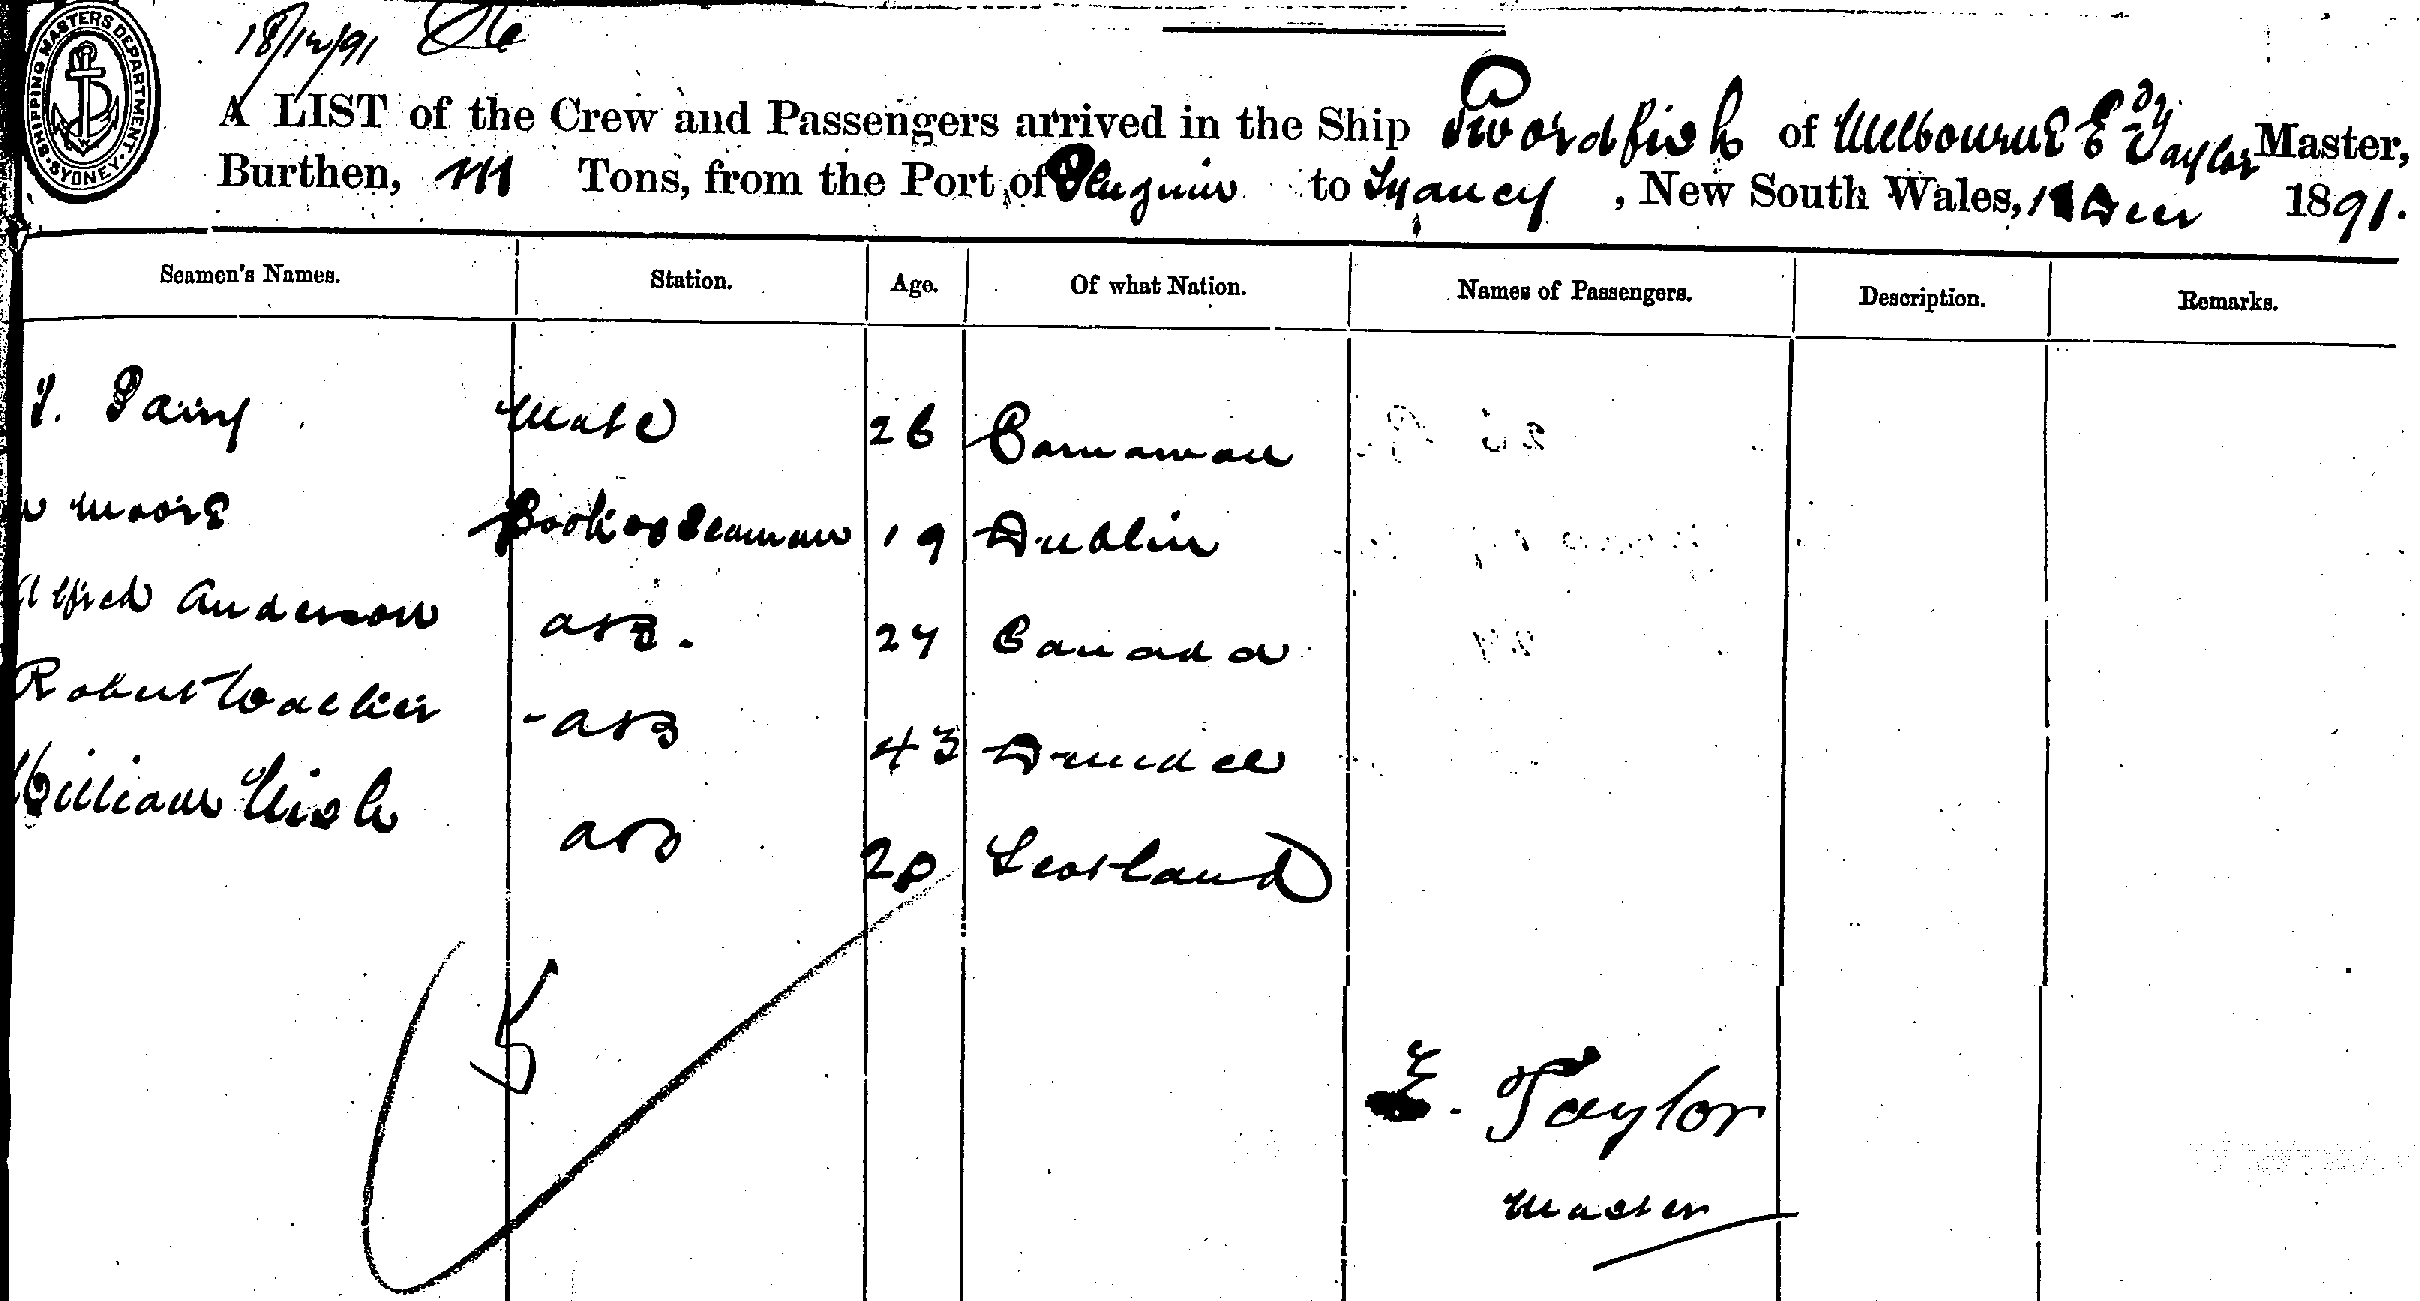 18/12/91
SHIPPING MASTERS DEPARTMENT. SYDNEY
A LIST of the Crew and Passengers arrived in the Ship Swordfish of Melbourne E Taylor Master,
Burthen, 111 Tons, from the Port of Penguin to Sydney, New South Wales, Decr 1891.
Seamen's Names. Station. Age. Of what Nation. Names of Passengers. Description. Remarks.
Mate 26 Carnarvon
W Moore Cook & Seaman 19 Dublin
Alfred Anderson A B. 27 Canada
Robert Walker - A B 43 Dundee
William A B 20 Scotland
5
E. Taylor
Master